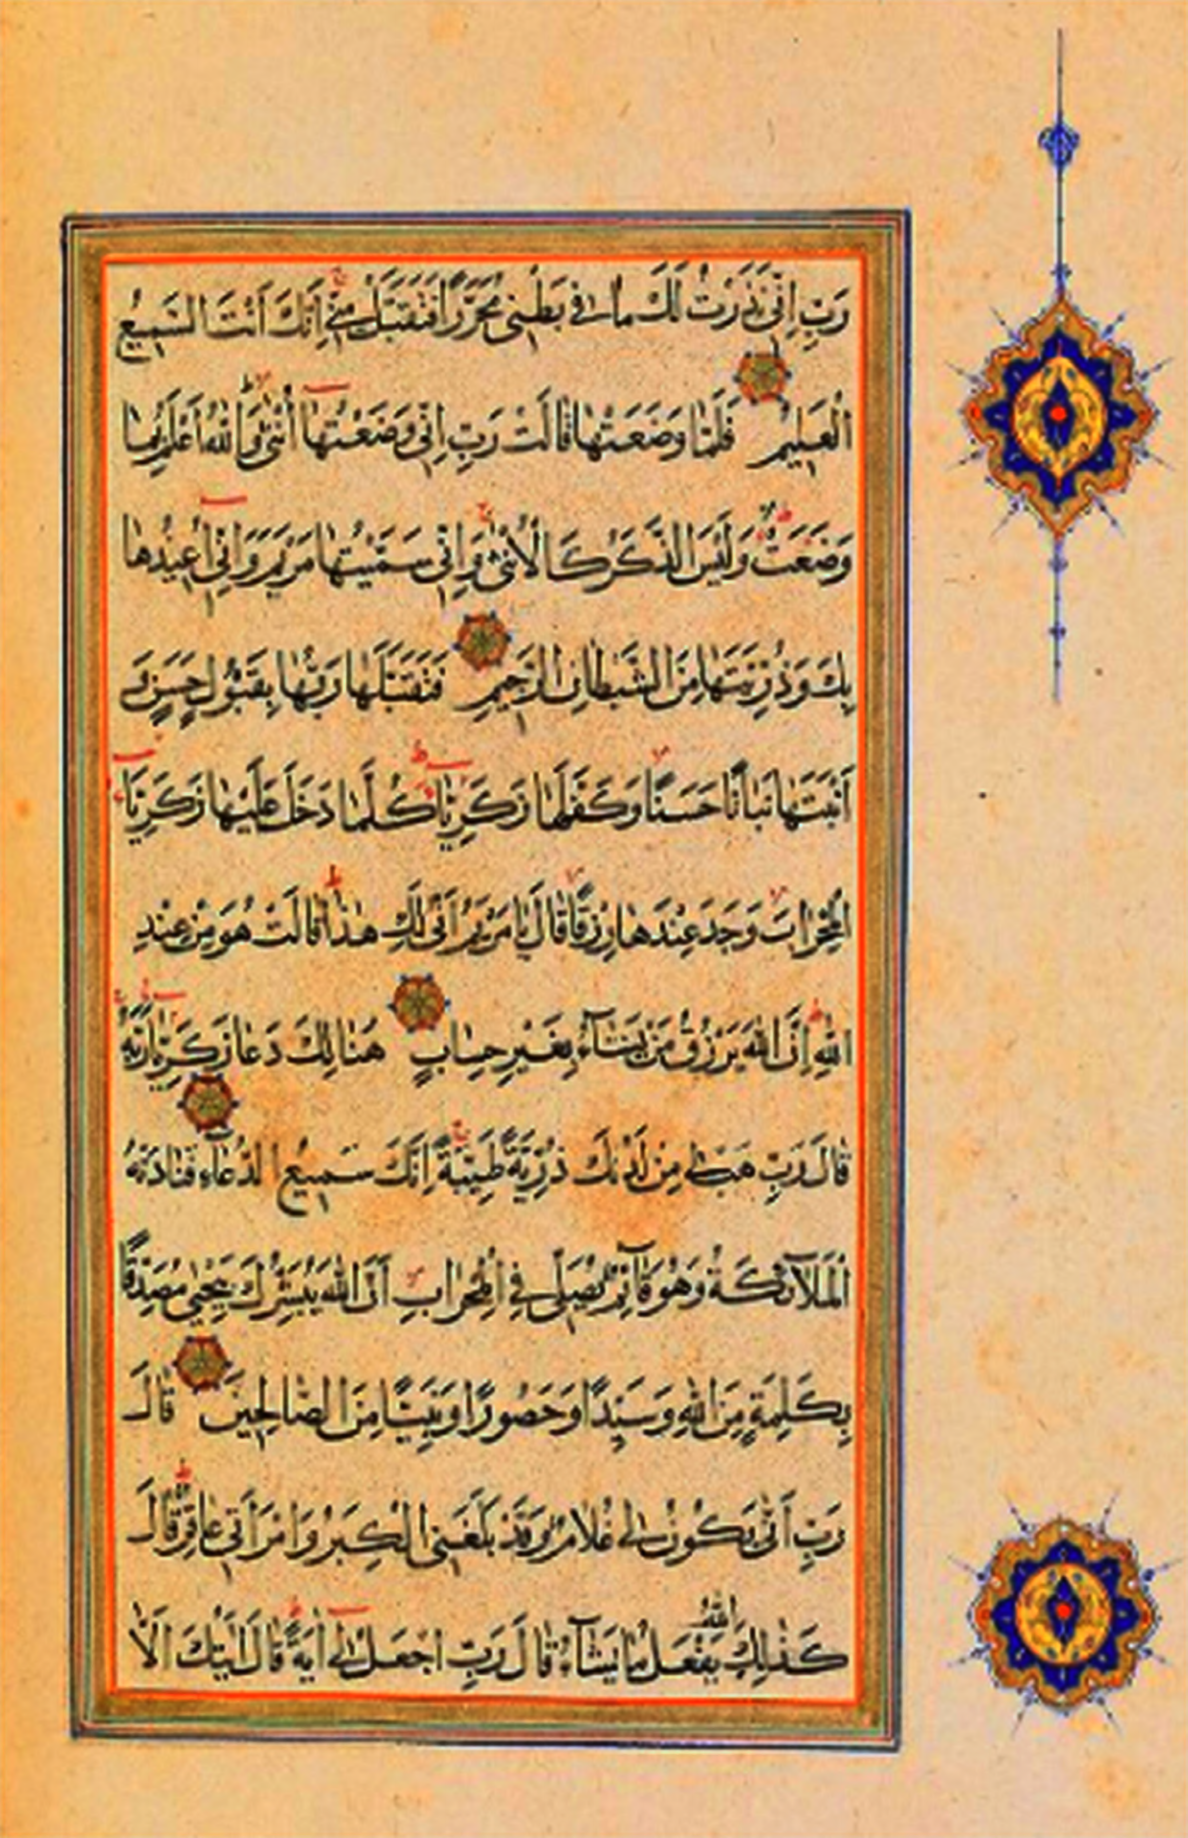 رَبِّ اِنِّي نَذَرْتُ لَكَ مَا فِي بَطْنِي مُحَرَّرًا فَتَقَبَّلْ مِنِّي اِنَّكَ اَنْتَ السَّمِيعُ
الْعَلِيمُ فَلَمَّا وَضَعَتْهَا قَالَتْ رَبِّ اِنِّي وَضَعْتُهَا اُنْثٰى وَاللّٰهُ اَعْلَمُ بِمَا
وَضَعَتْ وَلَيْسَ الذَّكَرُ كَالْاُنْثٰى وَاِنِّي سَمَّيْتُهَا مَرْيَمَ وَاِنِّي اُعِيذُهَا
بِكَ وَذُرِّيَّتَهَا مِنَ الشَّيْطَانِ الرَّجِيمِ فَتَقَبَّلَهَا رَبُّهَا بِقَبُولٍ حَسَنٍ وَ
اَنْبَتَهَا نَبَاتًا حَسَنًا وَكَفَّلَهَا زَكَرِيَّا كُلَّمَا دَخَلَ عَلَيْهَا زَكَرِيَّا
الْمِحْرَابَ وَجَدَ عِنْدَهَا رِزْقًا قَالَ يَا مَرْيَمُ اَنّٰى لَكِ هٰذَا قَالَتْ هُوَ مِنْ عِنْدِ
اللّٰهِ اِنَّ اللّٰهَ يَرْزُقُ مَنْ يَشَآءُ بِغَيْرِ حِسَابٍ هُنَالِكَ دَعَا زَكَرِيَّا رَبَّهُ
قَالَ رَبِّ هَبْ لِي مِنْ لَدُنْكَ ذُرِّيَّةً طَيِّبَةً اِنَّكَ سَمِيعُ الدُّعَاءِ فَنَادَتْهُ
الْمَلَآئِكَةُ وَهُوَ قَآئِمٌ يُصَلِّي فِي الْمِحْرَابِ اَنَّ اللّٰهَ يُبَشِّرُكَ بِيَحْيٰى مُصَدِّقًا
بِكَلِمَةٍ مِنَ اللّٰهِ وَسَيِّدًا وَحَصُورًا وَنَبِيًّا مِنَ الصَّالِحِينَ قَالَ
رَبِّ اَنّٰى يَكُونُ لِي غُلَامٌ وَقَدْ بَلَغَنِيَ الْكِبَرُ وَامْرَاَتِي عَاقِرٌ قَالَ
كَذٰلِكَ اللّٰهُ يَفْعَلُ مَا يَشَآءُ قَالَ رَبِّ اجْعَلْ لِي اٰيَةً قَالَ اٰيَتُكَ اَلَّا